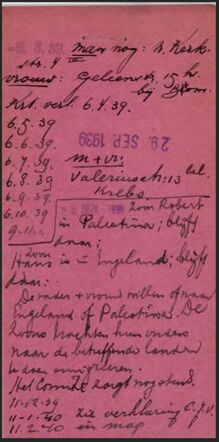 -8. 8. 39.
man nog: N. Kerk-
str. 4 III
vrouw: Geleenstr. 15 h.
bij Blom.
Krt. verl. 6.4.39.
6.5.39
6.6.39
29. SEP. 1939
6.7.39
m + vr:
6.8.39
Valeriusstr: 13 bel.
6.9.39
Krebs.
6.10.39
zoon Robert
9-11.
in Palestina; blijft
daar;
zoon
Hans is in Engeland; blijft
daar:
De vader + vrouw willen of naar
Engeland of Palestina. De
zoons trachten hun ouders
naar de betreffende landen
te doen emigreren.
Het Comité zorgt nog steeds.
11.12.39
11-1.'40 zie verklaring C.J.V.
11.2.40 in map.